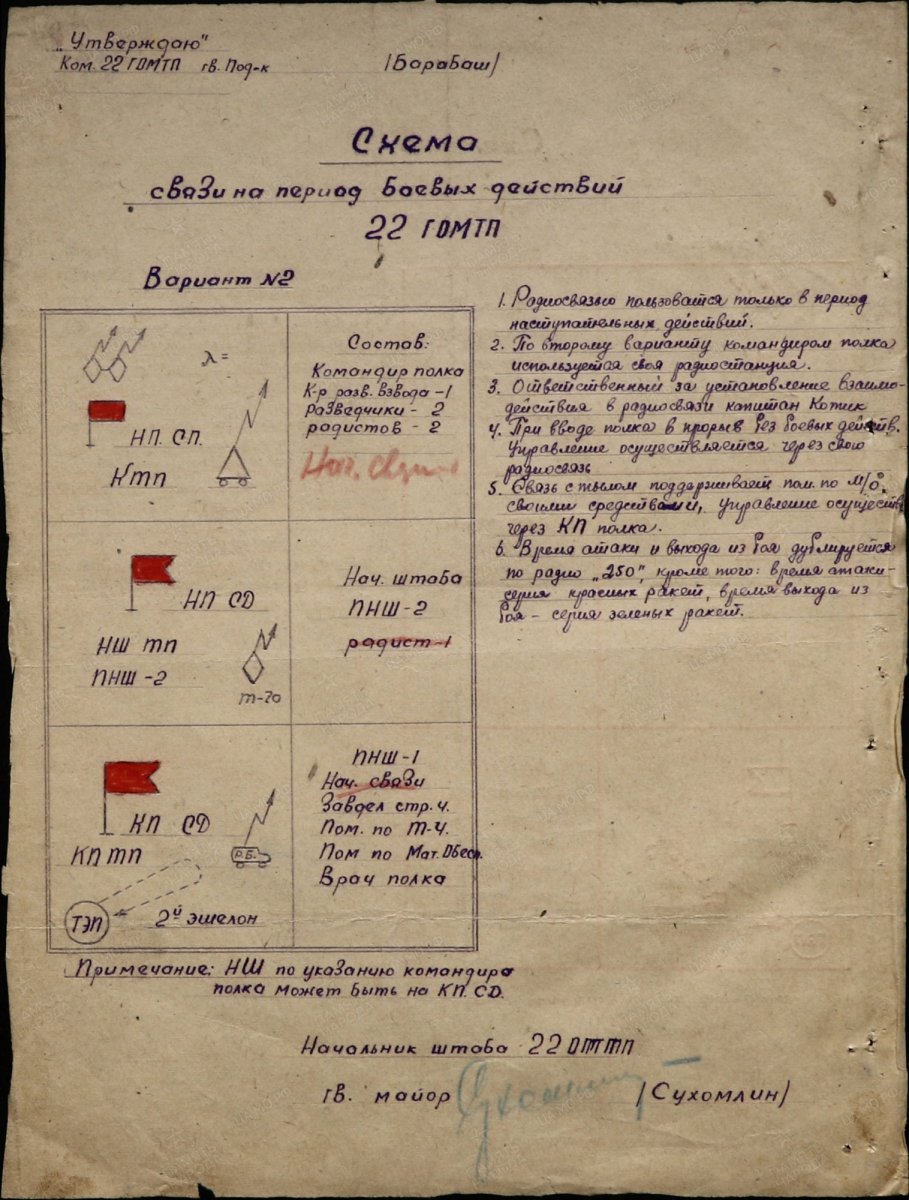 „Утверждаю"
Ком. 22 ГОМТП гв. Под-к /Барабаш/
Схема
связи на период боевых действий
22 ГОМТП
Вариант №2
λ=
НП. СП.
КТП
Состав:
Командир полка
К-р разв. взвода -1
разведчики - 2
радистов - 2
Нач. связи
НП СД
НШ тп
ПНШ-2
т-70
Нач. штаба
ПНШ-2
радист-1
КП СД
КП тп
Р.Б.
ТЭП
2й эшелон
ПНШ-1
Нач. связи
Завдел стр. ч.
Пом. по т-ч.
Пом по Мат. Обесп.
Врач полка
1. Радиосвязью пользоватся только в период
наступательных действий.
2. По второму варианту командиром полка
используется своя радиостанция.
3. Ответственный за установление взаимо-
действия в радиосвязи капитан Копик
4. При вводе полка в прорыв без боевых действ.
Управление осуществляется через свою
радиосвязь
5. Связь с тылом поддерживает пом. по м/о,
своими средствами, управление осуществ
через КП полка.
6. Время атаки и выхода из боя дублируется
по радио „250", кроме того: время атаки-
серия красных ракет, время выхода из
боя - серия зеленых ракет.
Примечание: НШ по указанию командира
полка может быть на КП. СД.
Начальник штаба 22 ОТТП
гв. майор /Сухомлин/